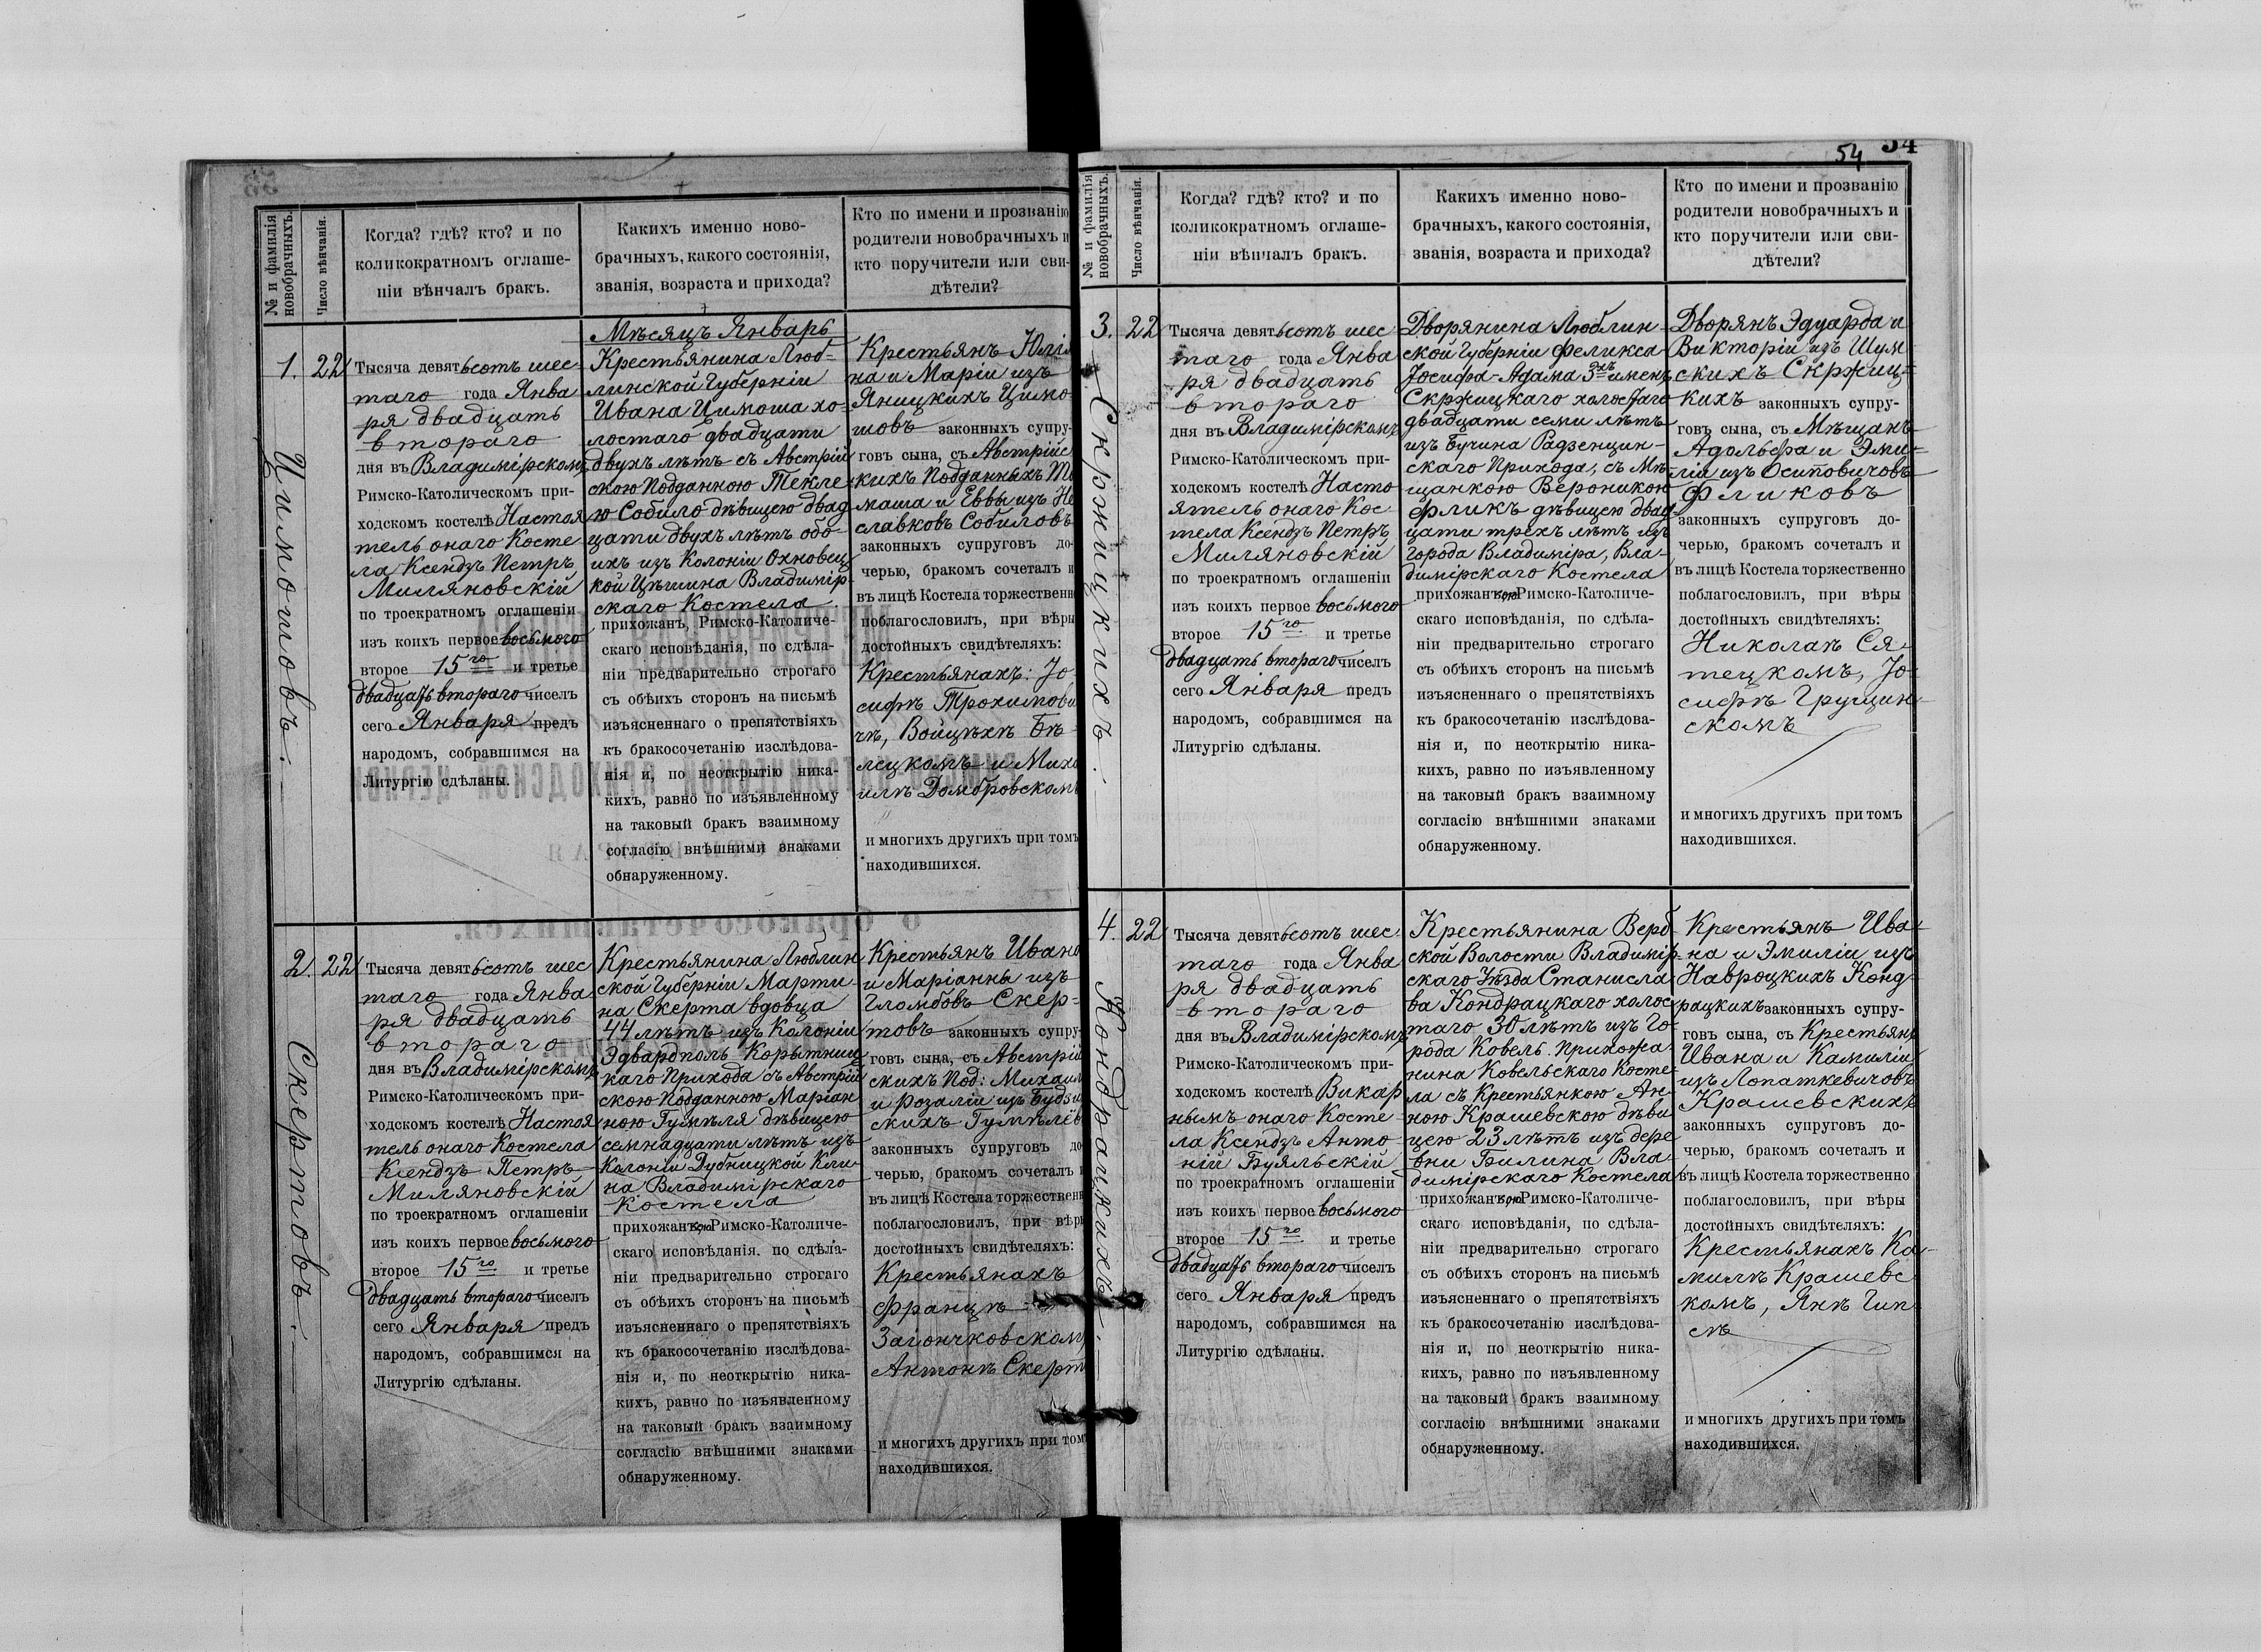 № и фамилія
новобрачныхъ.
Число вѣнчанія.
Когда? гдѣ? кто? и по
коликократномъ оглаше-
ніи вѣнчалъ бракъ.
Какихъ именно ново-
брачныхъ, какого состоянія,
званія, возраста и прихода?
Кто по имени и прозванію
родители новобрачныхъ и
кто поручители или сви-
дѣтели?
1.
22
Цимошовъ.
Тысяча девятьсотъ шес
таго года Янва
ря двадцать
втораго
дня въ Владимірскомъ
Римско-Католическомъ при-
ходскомъ костелѣ Настоя
тель онаго Косте
ла Ксендзъ Петръ
Миляновскій
по троекратномъ оглашеніи
изъ коихъ первое восьмого
второе 15го и третье
двадцать втораго чиселъ
сего Января предъ
народомъ, собравшимся на
Литургію сдѣланы.
Мѣсяцъ Январь
Крестьянина Люб-
линской Губерніи
Ивана Цимоша хо-
лостаго двадцати
двухъ лѣтъ съ Австрій
скою Подданною Текле
ю Собило дѣвицею двад
цати двухъ лѣтъ обо-
ихъ изъ Колоніи Охновец
кой Цѣшина Владимір-
скаго Костела.
прихожанъ, Римско-Католиче-
скаго исповѣданія, по сдѣла-
ніи предварительно строгаго
съ обѣихъ сторонъ на письмѣ
изъясненнаго о препятствіяхъ
къ бракосочетанію изслѣдова-
нія и, по неоткрытію ника-
кихъ, равно по изъявленному
на таковый бракъ взаимному
согласію внѣшними знаками
обнаруженному.
Крестьянъ Юлі
на и Маріи изъ
Яницкихъ Цимо
шовъ законныхъ супру-
говъ сына, съ Австрійс
кихъ Подданныхъ То
маша и Еввы изъ Не
славковъ Собиловъ
законныхъ супруговъ до-
черью, бракомъ сочеталъ и
въ лицѣ Костела торжественн
поблагословилъ, при вѣры
достойныхъ свидѣтеляхъ:
Крестьянахъ: Іо-
сифѣ Трохимови
чѣ, Войцѣхѣ Бѣ-
лецкомъ и Миха
илѣ Домбровскомъ
и многихъ другихъ при томъ
находившихся.
2.
22
Скертовъ.
Тысяча девятьсотъ шес
таго года Янва
ря двадцать
втораго
дня въ Владимірскомъ
Римско-Католическомъ при-
ходскомъ костелѣ Настоя
тель онаго Костела
Ксендзъ Петръ
Миляновскій
по троекратномъ оглашеніи
изъ коихъ первое восьмого
второе 15го и третье
двадцать втораго чиселъ
сего Января предъ
народомъ, собравшимся на
Литургію сдѣланы.
Крестьянина Люблин
ской Губерніи Марти-
на Скерта вдовца
44 лѣтъ изъ Колоніи
Эдвардполь Корытниц
каго Прихода съ Австрій
скою Подданною Маріан
ною Гумѣля дѣвицею
семнадцати лѣтъ изъ
Колоніи Дубницкой Кли-
на Владимірскаго
Костела
прихожанкою Римско-Католиче-
скаго исповѣданія. по сдѣла-
ніи предварительно строгаго
съ обѣихъ сторонъ на письмѣ
изъясненнаго о препятствіяхъ
къ бракосочетанію изслѣдова-
нія и, по неоткрытію ника-
кихъ, равно по изъявленному
на таковый бракъ взаимному
согласію внѣшними знаками
обнаруженному.
Крестьянъ Ивана
и Маріанны изъ
Гломбовъ Скер-
товъ законныхъ супру-
говъ сына, съ Австрій
скихъ Под: Михаил
и Розаліи изъ Будзи
скихъ Гумѣлёв
законныхъ супруговъ до
черью, бракомъ сочеталъ
въ лицѣ Костела торжественн
поблагословилъ, при вѣр
достойныхъ свидѣтеляхъ:
Крестьянахъ
Францѣ
Загончковском
Антонѣ Скерт
и многихъ другихъ при том
находившихся.
54
54
№ и фамилія
новобрачныхъ.
Число вѣнчанія.
Когда? гдѣ? кто? и по
коликократномъ оглаше-
ніи вѣнчалъ бракъ.
Какихъ именно ново-
брачныхъ, какого состоянія,
званія, возраста и прихода?
Кто по имени и прозванію
родители новобрачныхъ и
кто поручители или сви-
дѣтели?
3.
22
Скржицкихъ.
Тысяча девятьсотъ шес
таго года Янва
ря двадцать
втораго
дня въ Владимірскомъ
Римско-Католическомъ при-
ходскомъ костелѣ Насто
ятель онаго Кос-
тела Ксендзъ Петръ
Миляновскій
по троекратномъ оглашеніи
изъ коихъ первое восьмого
второе 15го и третье
двадцать втораго чиселъ
сего Января предъ
народомъ, собравшимся на
Литургію сдѣланы.
Дворянина Люблин-
ской Губерніи Феликса-
Іосифа-Адама 3хъ именъ
Скржицкаго холостаго
двадцати семи лѣтъ
изъ Бучина Радзенцин-
скаго Прихода, съ Мѣ-
щанкою Вероникою
Фликъ дѣвицею двад-
цати трехъ лѣтъ изъ
города Владиміра, Вла-
димірскаго Костела
прихожанкою Римско-Католиче-
скаго исповѣданія, по сдѣла-
ніи предварительно строгаго
съ обѣихъ сторонъ на письмѣ
изъясненнаго о препятствіяхъ
къ бракосочетанію изслѣдова-
нія и, по неоткрытію ника-
кихъ, равно по изъявленному
на таковый бракъ взаимному
согласію внѣшними знаками
обнаруженному.
Дворянъ Эдуарда и
Викторіи изъ Шум
скихъ Скржиц-
кихъ законныхъ супру-
говъ сына, съ Мѣщанъ
Адольфа и Эми-
ліи изъ Осиповичовъ
Фликовъ
законныхъ супруговъ до-
черью, бракомъ сочеталъ и
въ лицѣ Костела торжественно
поблагословилъ, при вѣры
достойныхъ свидѣтеляхъ:
Николаѣ Ся-
тецкомъ, Іо-
сифѣ Грущин-
скомъ
и многихъ другихъ при томъ
находившихся.
4.
22
Кондрацкихъ.
Тысяча девятьсотъ шес
таго года Янва
ря двадцать
втораго
дня въ Владимірскомъ
Римско-Католическомъ при-
ходскомъ костелѣ Викар
нымъ онаго Косте-
ла Ксендзъ Анто
ній Буяльскій
по троекратномъ оглашеніи
изъ коихъ первое восьмого
второе 15го и третье
двадцать втораго чиселъ
сего Января предъ
народомъ, собравшимся на
Литургію сдѣланы.
Крестьянина Верб
ской Волости Владимір-
скаго Уѣзда Станисла
ва Кондрацкаго холос
таго 30 лѣтъ изъ Го
рода Ковель. Прихожа-
нина Ковельскаго Косте-
ла съ Крестьянкою Ан-
ною Крашевскою дѣви
цею 23 лѣтъ изъ дере
вни Билина Вла-
димірскаго Костела
прихожанкою Римско-Католиче-
скаго исповѣданія, по сдѣла-
ніи предварительно строгаго
съ обѣихъ сторонъ на письмѣ
изъясненнаго о препятствіяхъ
къ бракосочетанію изслѣдова-
нія и, по неоткрытію ника-
кихъ, равно по изъявленному
на таковый бракъ взаимному
согласію внѣшними знаками
обнаруженному.
Крестьянъ Ива-
на и Эмиліи изъ
Навроцкихъ Конд-
рацкихъ законныхъ супру-
говъ сына, съ Крестьянъ
Ивана и Камиліи
изъ Лопаткевичовъ
Крашевскихъ
законныхъ супруговъ до-
черью, бракомъ сочеталъ и
въ лицѣ Костела торжественно
поблагословилъ, при вѣры
достойныхъ свидѣтеляхъ:
Крестьянахъ Ка-
милѣ Крашевс
комъ, Янѣ Гип
съ
и многихъ другихъ при томъ
находившихся.